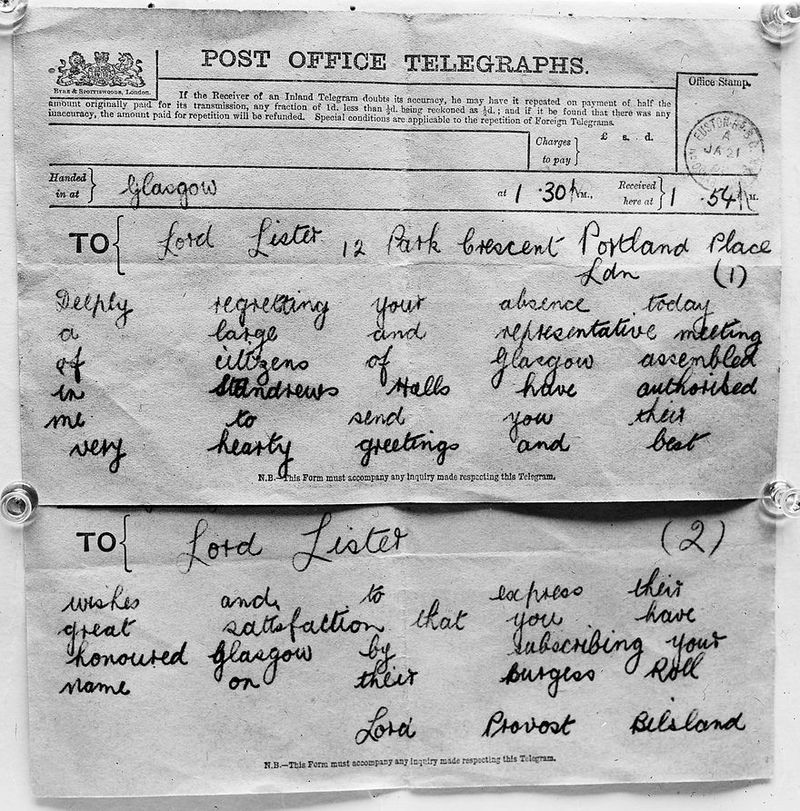 POST OFFICE TELEGRAPHS.
EYRE & SPOTTISWOODE, LONDON.
If the Receiver of an Inland Telegram doubts its accuracy, he may have it repeated on payment of half the
amount originally paid for its transmission, any fraction of 1d. less than ½d. being reckoned as ½d.; and if it be found that there was any
inaccuracy, the amount paid for repetition will be refunded. Special conditions are applicable to the repetition of Foreign Telegrams.
Office Stamp.
EUSTON
A
JA 21
Charges to pay } £ s. d.
Handed in at } Glasgow at 1.30 P M., Received here at } 1.54 P M.
TO { Lord Lister 12 Park Crescent Portland Place
Ldn (1)
Deeply regretting your absence today
a large and representative meeting
of citizens of Glasgow assembled
in St Andrews Halls have authorised
me to send you their
very hearty greetings and best
N.B.—This Form must accompany any inquiry made respecting this Telegram.
TO { Lord Lister (2)
wishes and to express their
great satisfaction that you have
honoured Glasgow by subscribing your
name on their Burgess Roll
Lord Provost Bilsland
N.B.—This Form must accompany any inquiry made respecting this Telegram.